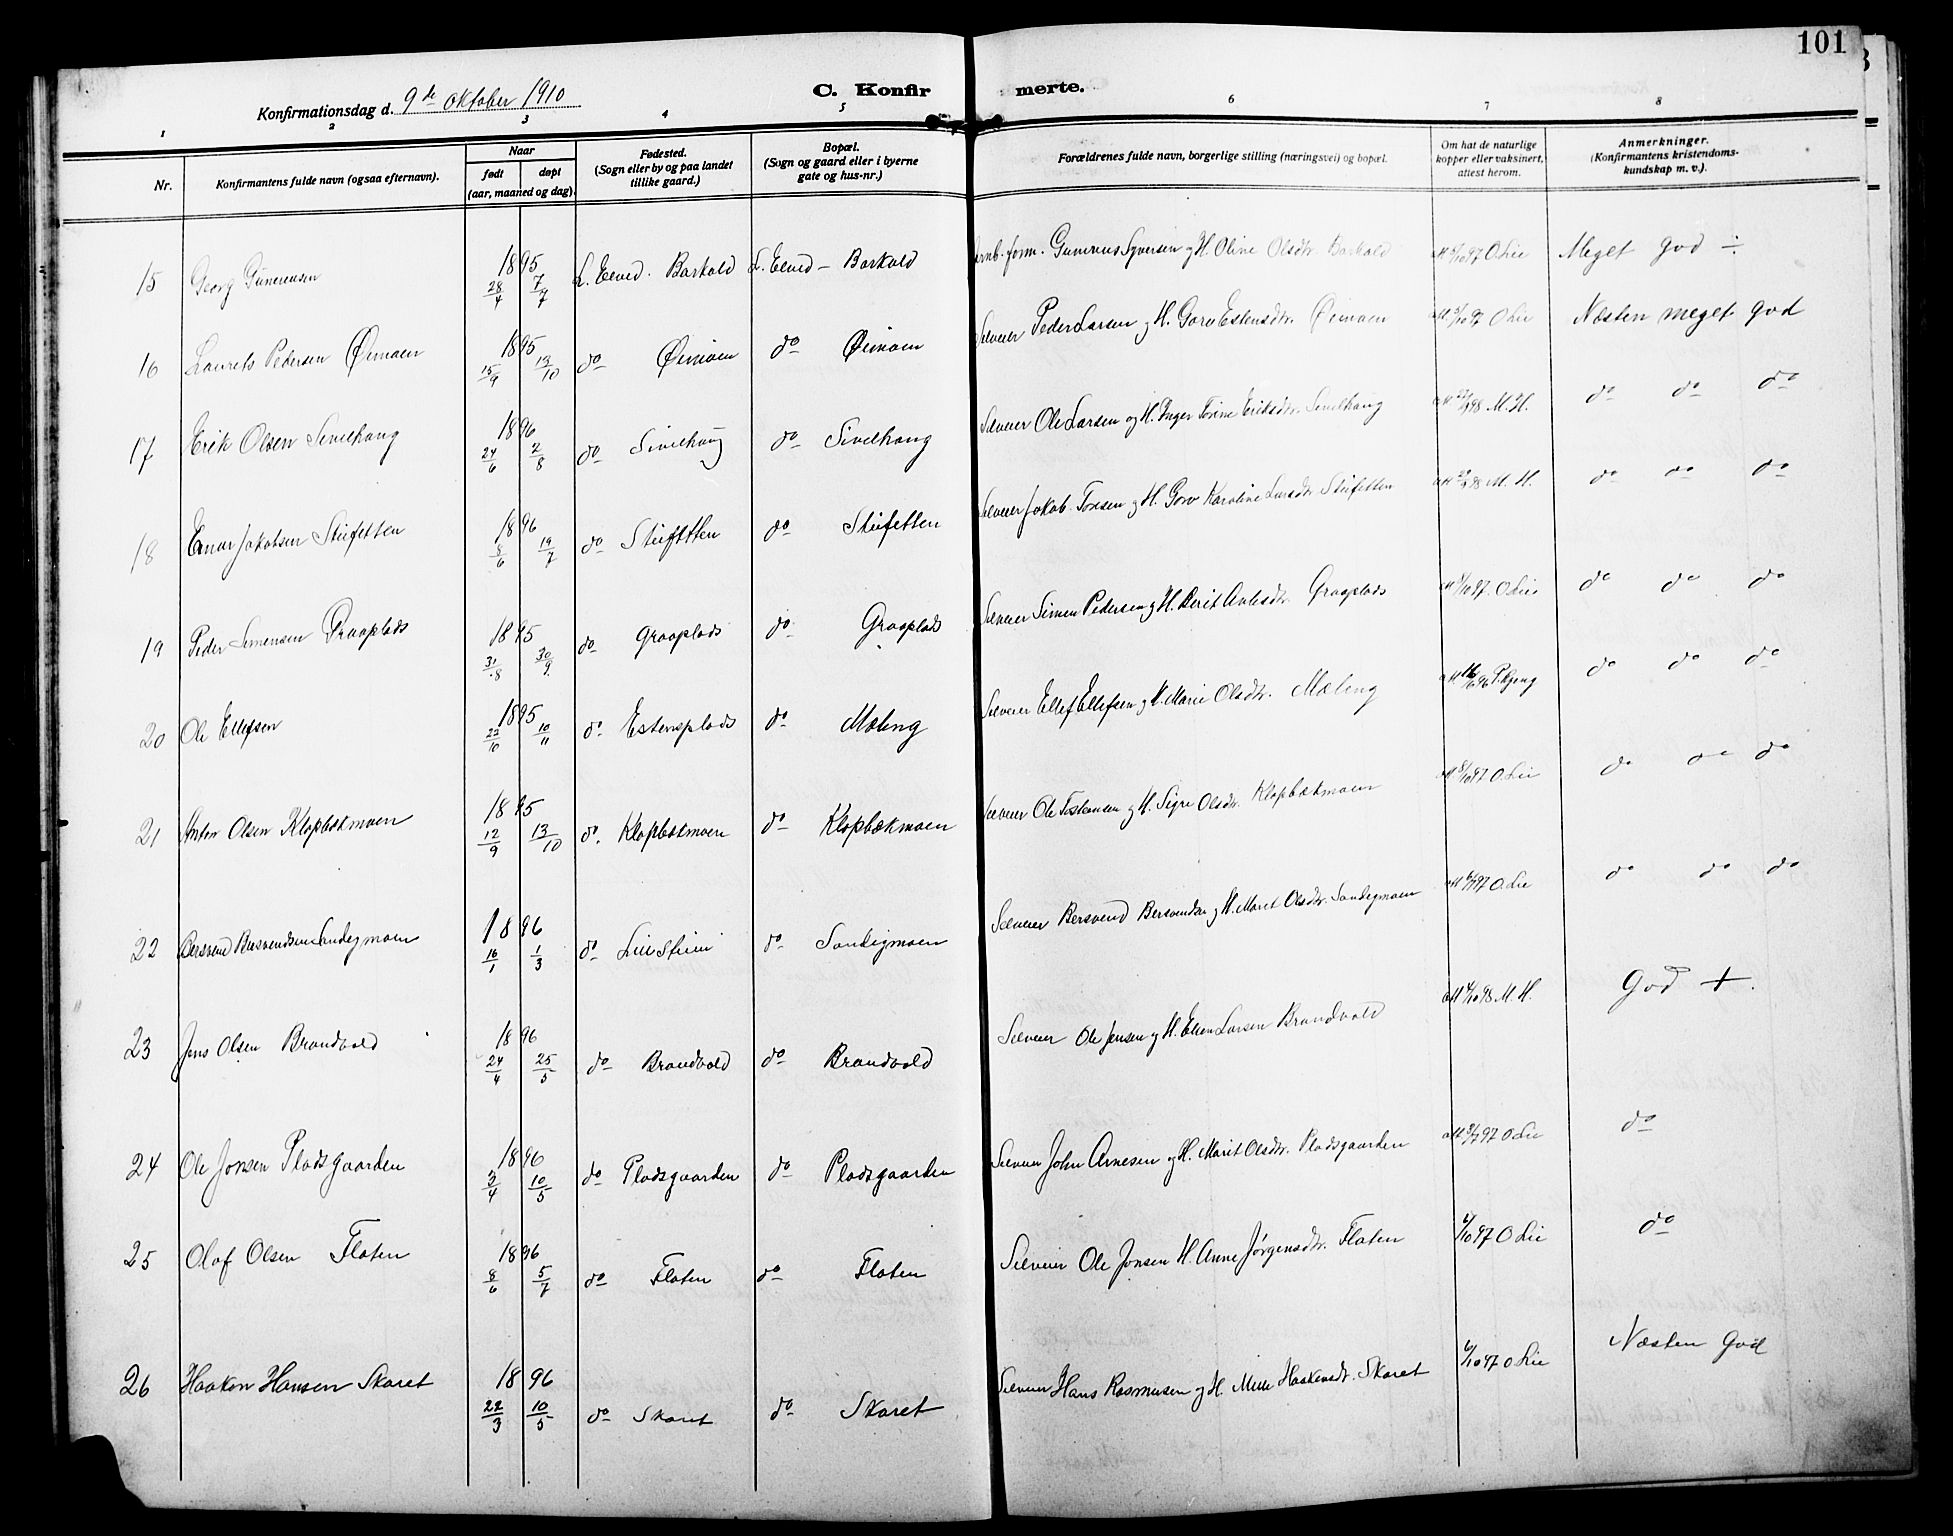 101
Konfirmationsdag d. 9de Oktober 1910
C. Konfirmerte.
1 2 3 4 5 6 7 8
Nr.
Konfirmantens fulde navn (ogsaa efternavn).
Naar
født døpt
(aar, maaned og dag).
Fødested.
(Sogn eller by og paa landet
tillike gaard.)
Bopæl.
(Sogn og gaard eller i byerne
gate og hus-nr.)
Forældrenes fulde navn, borgerlige stilling (næringsvei) og bopæl.
Om hat de naturlige
kopper eller vaksinert,
attest herom.
Anmerkninger.
(Konfirmantens kristendoms-
kundskap m. v.).
15 Georg Gunerensen 1895 28/4 7/7 L. Elved. Barkald L. Elved - Barkald form. Gunerius Syversen og H. Oline Olsdtr. Barkald O. Lie Meget god ÷
16 Laurits Pedersen Øimoen 1895 15/9 13/10 do Øimoen do Øimoen Selveier Peder Larsen og H. Goro Estensdtr. Øimoen O Lie Næsten meget god
17 Erik Olsen Sivilhaug 1896 24/6 2/8 do Sivilhaug do Sivilhaug Selveier Ole Larsen og H. Inger Torine Eriksdtr. Sivilhaug M. H. do do do
18 Einar Jakobsen Stufetten 1896 8/6 19/7 do do Selveier Jakob Tonsen og H. Goro Karoline Larsdtr. M. H. do do do
19 Peder Simensen Graaplads 1895 31/8 30/9 do Graaplads do Graaplads Selveier Simen Pedersen og H. Berit Graaplads O Lie do do do
20 Ole Ellefsen 1895 22/10 10/11 do Estensplads do Moleng Selveier Ellef Ellefsen og H. Marie Olsdtr. Moleng do do do
21 Anton Olsen Klopbækmoen 1895 12/9 13/10 do. Klopbækmoen do Klopbækmoen Selveier Ole og H. Sigre Olsdtr. Klopbækmoen O. Lie do do do
22 Bersvend Bersvendsen Sandegmoen 1896 16/1 1/3 do do Sandegmoen Selveier Bersvend Bersvendsen og H. Marit Olsdtr. Sandegmoen O. Lie do do do
23 Jens Olsen Brandvold 1896 24/4 25/5 do Brandvold do Brandvold Selveier Ole Jensen og H. Ellen Larsen Brandvold M. H. God +.
24 Ole Jonsen Pladsgaarden 1896 3/4 10/5 do Pladsgaarden do Pladsgaarden Selveier John Arnesen og H. Marit Olsdtr. Pladsgaarden O Lie do
25 Olaf Olsen Floten 1896 8/6 5/7 do Floten do Floten Selveier Ole Jonsen H. Anne Jørgensdtr. Floten O Lie do
26 Haakon Hansen Skaret 1896 22/3 10/5 do Skaret do Skaret Selveier Hans Rasmusen og H. Mille Haakensdtr. Skaret O Lie Næsten God